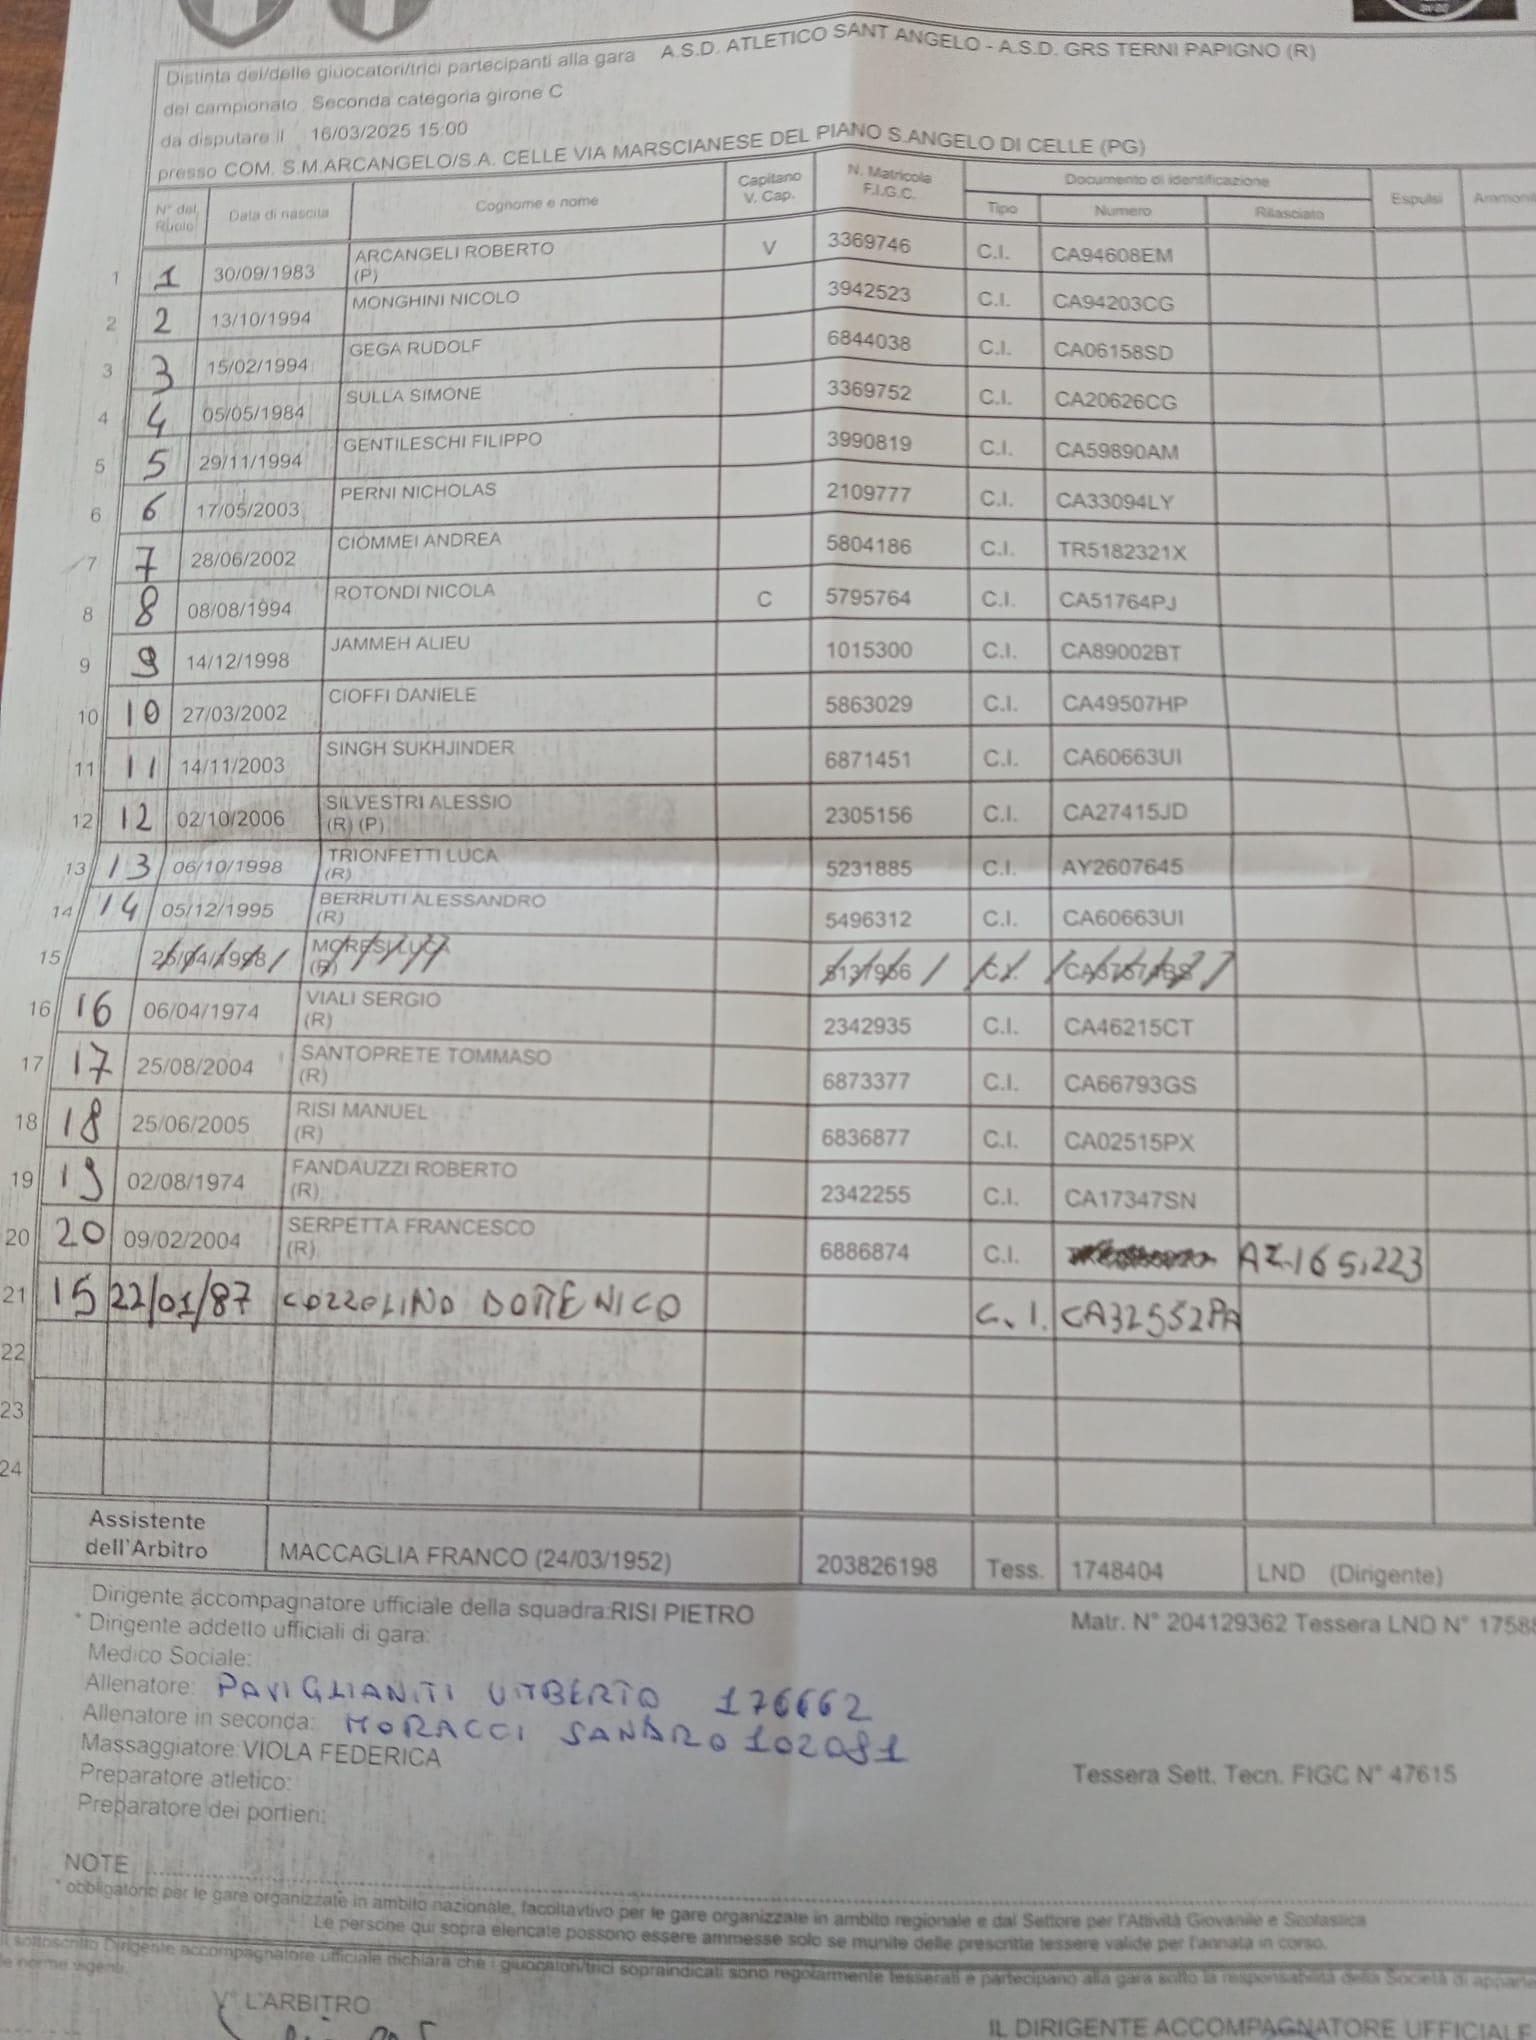 Distinta dei/delle giuocatori/trici partecipanti alla gara A.S.D. ATLETICO SANT ANGELO - A.S.D. GRS TERNI PAPIGNO (R)
del campionato Seconda categoria girone C
da disputare il 16/03/2025 15:00
presso COM. S.M.ARCANGELO/S.A. CELLE VIA MARSCIANESE DEL PIANO S.ANGELO DI CELLE (PG)
N° del Ruolo Data di nascita Cognome e nome Capitano V. Cap. N. Matricola F.I.G.C. Documento di identificazione Espulsi
Tipo Numero Rilasciato
1 1 30/09/1983 ARCANGELI ROBERTO (P) V 3369746 C.I. CA94608EM
2 2 13/10/1994 MONGHINI NICOLO 3942523 C.I. CA94203CG
3 3 15/02/1994 GEGA RUDOLF 6844038 C.I. CA06158SD
4 4 05/05/1984 SULLA SIMONE 3369752 C.I. CA20626CG
5 5 29/11/1994 GENTILESCHI FILIPPO 3990819 C.I. CA59890AM
6 6 17/05/2003 PERNI NICHOLAS 2109777 C.I. CA33094LY
7 7 28/06/2002 CIOMMEI ANDREA 5804186 C.I. TR5182321X
8 8 08/08/1994 ROTONDI NICOLA C 5795764 C.I. CA51764PJ
9 9 14/12/1998 JAMMEH ALIEU 1015300 C.I. CA89002BT
10 10 27/03/2002 CIOFFI DANIELE 5863029 C.I. CA49507HP
11 11 14/11/2003 SINGH SUKHJINDER 6871451 C.I. CA60663UI
12 12 02/10/2006 SILVESTRI ALESSIO (R) (P) 2305156 C.I. CA27415JD
13 13 06/10/1998 TRIONFETTI LUCA (R) 5231885 C.I. AY2607645
14 14 05/12/1995 BERRUTI ALESSANDRO (R) 5496312 C.I. CA60663UI
15 (R) C.I.
16 16 06/04/1974 VIALI SERGIO (R) 2342935 C.I. CA46215CT
17 17 25/08/2004 SANTOPRETE TOMMASO (R) 6873377 C.I. CA66793GS
18 18 25/06/2005 RISI MANUEL (R) 6836877 C.I. CA02515PX
19 19 02/08/1974 FANDAUZZI ROBERTO (R) 2342255 C.I. CA17347SN
20 20 09/02/2004 SERPETTA FRANCESCO (R) 6886874 C.I. AZ.165.223
21 15 22/01/87 COZZOLINO DOMENICO C.I. CA32552PA
22
23
24
Assistente dell'Arbitro MACCAGLIA FRANCO (24/03/1952) 203826198 Tess. 1748404 LND (Dirigente)
Dirigente accompagnatore ufficiale della squadra:RISI PIETRO Matr. N° 204129362 Tessera LND N°
* Dirigente addetto ufficiali di gara:
Medico Sociale:
Allenatore: PAVIGLIANITI UMBERTO 176662
Allenatore in seconda: MORACCI SANDRO 102081
Massaggiatore:VIOLA FEDERICA Tessera Sett. Tecn. FIGC N° 47615
Preparatore atletico:
Preparatore dei portieri:
NOTE
* obbligatorio per le gare organizzate in ambito nazionale, facoltavtivo per le gare organizzate in ambito regionale e dal Settore per l'Attività Giovanile e Scolastica
Le persone qui sopra elencate possono essere ammesse solo se munite delle prescritte tessere valide per l'annata in corso.
Il sottoscritto Dirigente accompagnatore ufficiale dichiara che i giuocatori/trici sopraindicati sono regolarmente tesserati e partecipano alla gara sotto la responsabilità della Società di
le norme vigenti.
V° L'ARBITRO
IL DIRIGENTE ACCOMPAGNATORE UFFICIALE